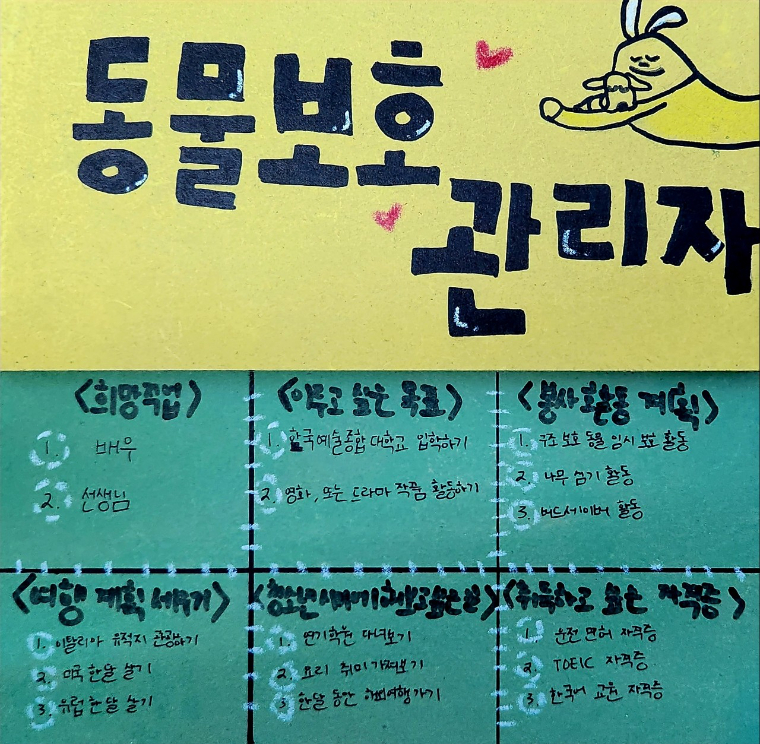 동물보호
관리자
<희망직업>
1. 배우
2. 선생님
<이루고 싶은 목표>
1. 한국예술종합대학교 입학하기
2. 영화, 또는 드라마 작품 활동하기
<봉사활동 계획>
1. 구조 보호 동물 임시 보호 활동
2. 나무 심기 활동
3. 버드세이버 활동
<여행 계획 세우기>
1. 이탈리아 유적지 관광하기
2. 미국 한달 살기
3. 유럽 한달 살기
<청소년시기에 하고싶은 일>
1. 연기학원 다녀보기
2. 요리 취미 가져보기
3. 한달 동안 해외여행 가기
<취득하고 싶은 자격증>
1. 운전 면허 자격증
2. TOEIC 자격증
3. 한국어 교원 자격증